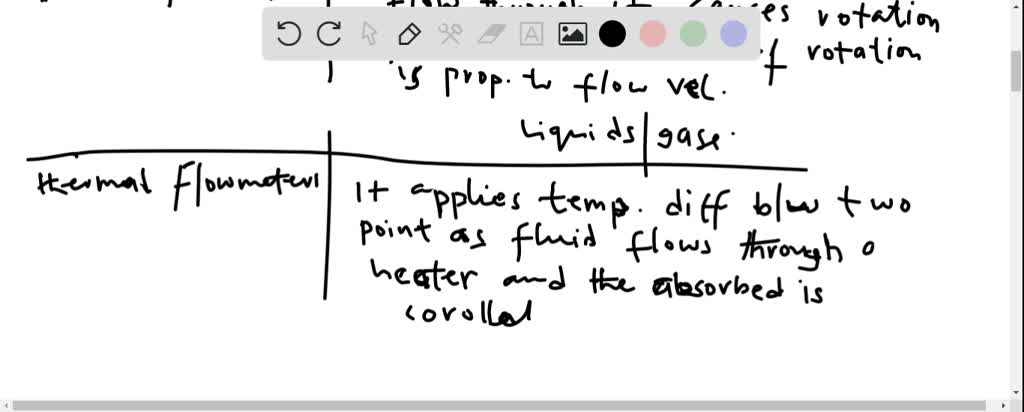 flow through it causes rotation
of rotation
is prop. to flow vel.
liquids | gase.
thermal flowmeters
It applies temp. diff b/w two
point as fluid flows through a
heater and the absorbed is
corolled